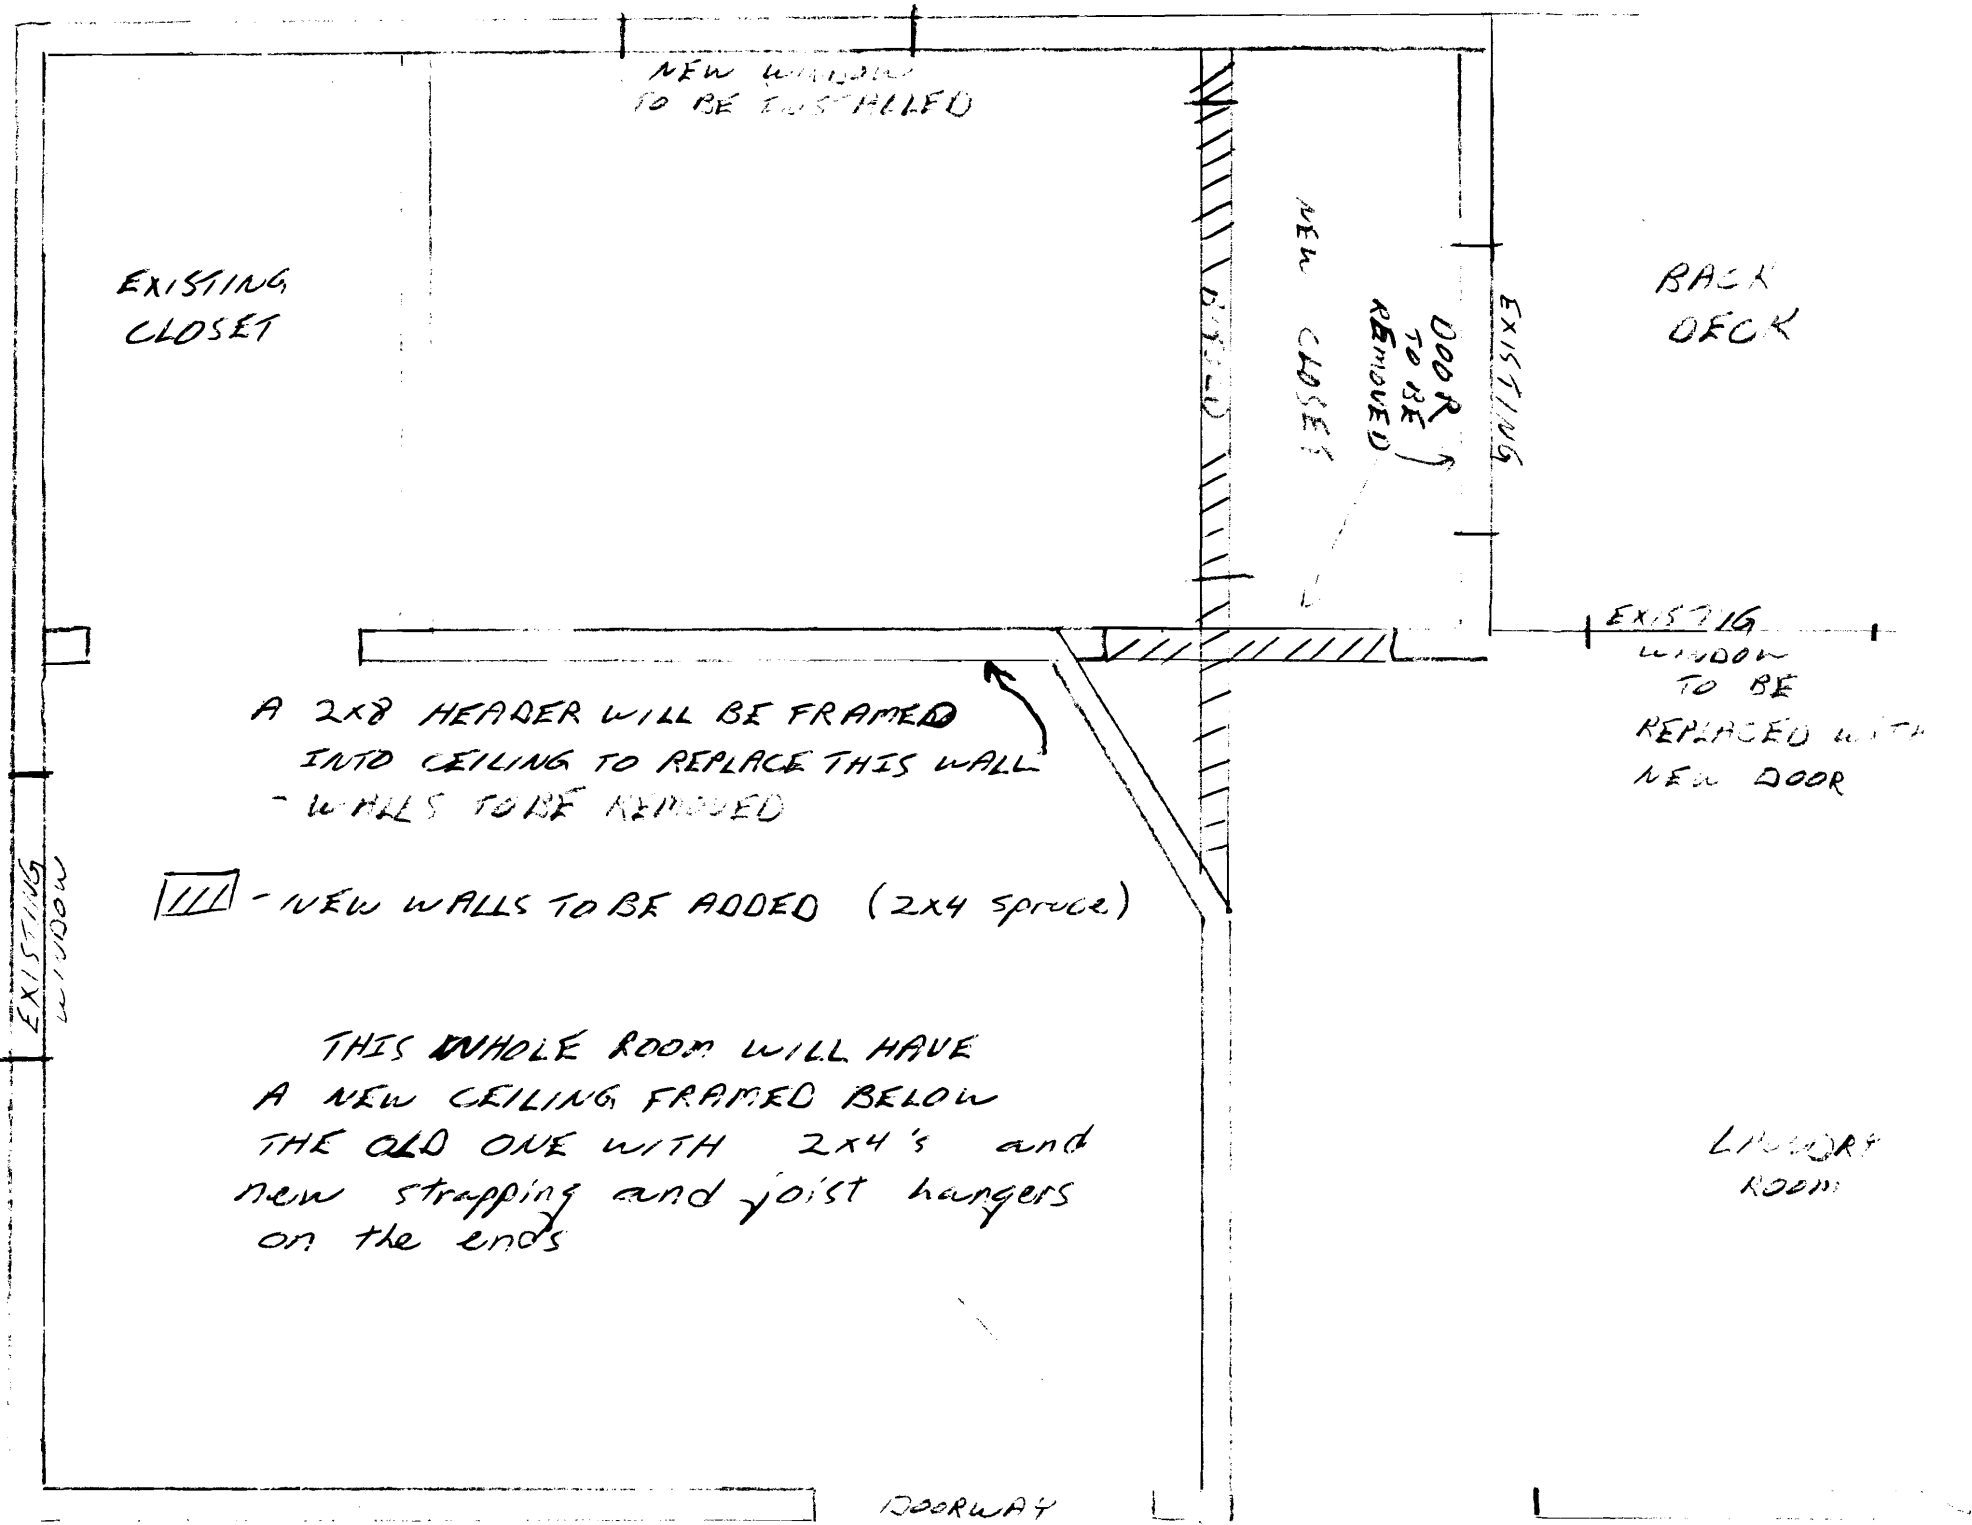 NEW WINDOW
TO BE INSTALLED
EXISTING
CLOSET
BI-FOLD
NEW CLOSET
EXISTING
DOOR
TO BE
REMOVED
BACK
DECK
EXISTIG
WINDOW
TO BE
REPLACED WITH
NEW DOOR
A 2X8 HEADER WILL BE FRAMED
INTO CEILING TO REPLACE THIS WALL
- WALLS TO BE REMOVED
- NEW WALLS TO BE ADDED (2x4 spruce)
EXISTING
WINDOW
THIS WHOLE ROOM WILL HAVE
A NEW CEILING FRAMED BELOW
THE OLD ONE WITH 2x4's and
new strapping and joist hangers
on the ends
LAUNDRY
ROOM
DOORWAY